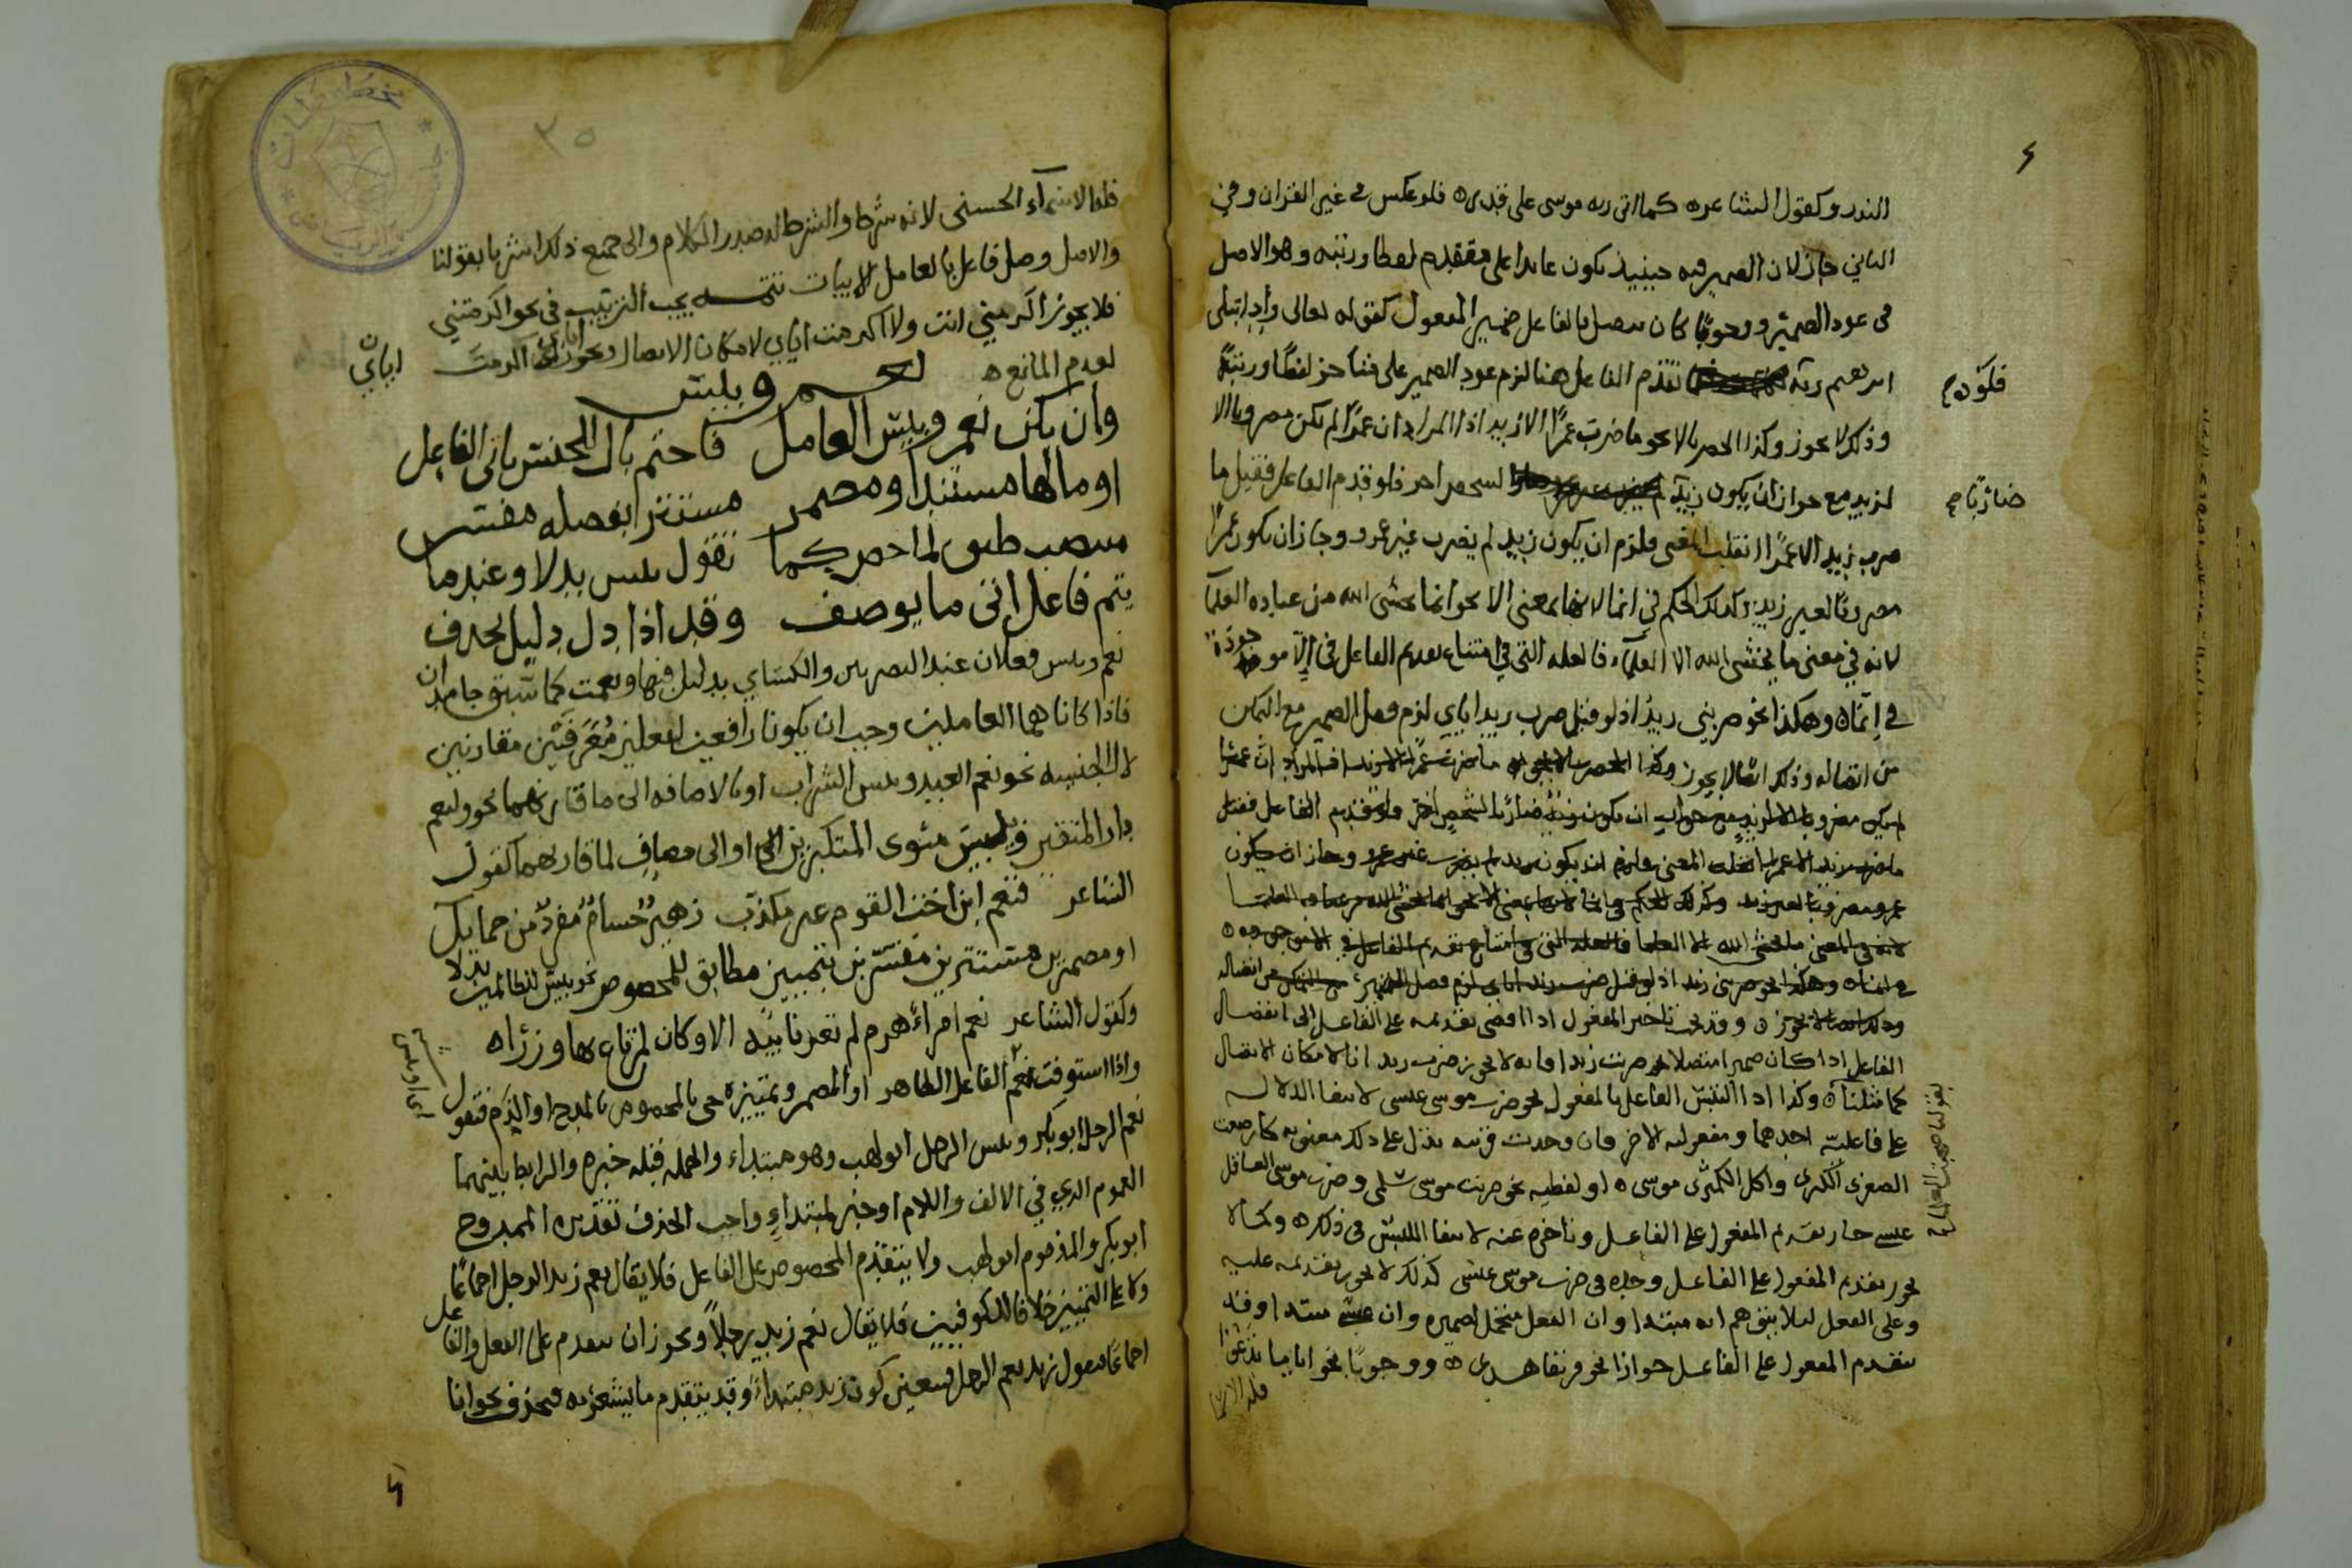 النذر وكقول الشاعر ه كما اتى ربه موسى على قدر ه فلو عكس في غير القران وفي
الثاني جاز لان الضمير فيه حينيذ يكون عايدا على متقدم لفظا ورتبه وهو الاصل
في عود الضمير ووجوبًا كان يتصل بالفاعل ضمير المفعول كقوله تعالى وإذ ابتلى
ابرهيم ربه تقدم الفاعل هنا لزم عود الضمير على متاخر لفظًا ورتبةً
فلو
وذلك لا يجوز وكذا الحصر بالا نحو ما ضرب عمرًا الا زيد اذا المراد ان عمرًا لم يكن مضروبا الا
لزيد مع جواز ان يكون زيد لشخص اخر فلو قدم الفاعل فقيل ما
ضاربًا
ضرب زيد الا عمرًا انقلب المعنى فلزم ان يكون زيد لم يضرب غير عمرو وجاز ان يكون عمرًا
مضروبًا لغير زيد وكذلك الحكم في انما لانها بمعنى الا نحو انما يخشى الله من عباده العلمآ
لانه في معنى ما يخشى الله الا العلمآء فالعله التي في امتناع تقديم الفاعل في إلّا موجودة
في إنماه وهكذا نحو ضربني زيد اذ لو قيل ضرب زيد اياي لزم فصل الضمير مع التمكن
من اتصاله وذلك ايضا لا يجوز وكذا الحصر بالا نحو ما ضرب عمرًا الا زيد اذ المراد ان عمرًا
لم يكن مضروبا الا لزيد مع جواز ان يكون زيد ضاربًا لشخص اخر ولو تقدم الفاعل فقيل
ما ضرب زيد الا عمرا انقلب المعنى فلزم ان يكون زيد لم يضرب غير عمرو وجاز ان يكون
عمرو مضروبًا لغير زيد وكذلك الحكم في انما لانها بمعنى الا نحو انما يخشى الله من عباده العلمـا
لانه في المعنى ما يخشى الله الا العلما فالعله التي في امتناع تقديم الفاعل في الا موجوده ه
في انماه وهكذا نحو ضربني زيد اذ لو قيل ضرب زيد اياي لزم فصل الضمير مع التمكن من اتصاله
وذلك لا يجوز ه وقد يجب تاخير المفعول اذا افضى تقديمه على الفاعل الى انفصال
الفاعل اذا كان ضميرا متصلا نحو ضربت زيدا فانه لا يجوز ضرب زيد انا لامكان الاتصال
كما مثلناه وكذا اذا التبس الفاعل بالمفعول نحو ضرب موسى عيسى لانتفا الدلاله
على فاعليّة احدهما ومفعوليه الاخر فان وجدت قرينه تدل على ذلك معنويه كارضعت
الصغرى الكبرى واكل الكمثرى موسى ه او لفظيه نحو ضربت موسى سلمى وضرب موسى العاقل
عيسى جاز تقديم المفعول على الفاعل وتاخيره عنه لانتفا اللبس في ذلك ه وكما لا
يجوز تقديم المفعول على الفاعل وحده في ضرب موسى عيسى كذلك لا يجوز تقديمه عليه
وعلى الفعل ليلا يتوهم انه مبتدا وان الفعل متحمل لضميره وان عيسى وقد
يتقدم المفعول على الفاعل جوازا نحو فريقا هدى ه ووجوبًا نحو ايا ما تدعوا
فله الاسما
فله الاسمآء الحسنى لانه شرط والشرط له صدر الكلام والى جميع ذلك اشرنا بقولنا
والاصل وصل فاعل بالعامل الابيات تتمه يجب الترتيب في نحو اكرمتني
فلا يجوز اكرمني انت ولا اكرمت اياي لامكان الاتصال ويجوز اياي اكرمت
اياي
لعدم المانع ه
نعم وبيس
وان يكن نعم وبيس العامل فاحتم بال الجنس ياتى الفاعل
او مالها مستندا ومضمر مستترا يفصله مفسر
بنصب طبق لما حصر كما تقول بيس بدلا وعندما
يتم فاعل اتى ما يوصف وقبل اذا دل دليل يحذف
نعم وبيس فعلان عند البصريين والكساي بدليل فبها ونعمت كما سبق جامدان
فاذا كانا هما العاملين وجب ان يكونا رافعين لفاعلين مُعَرَّفَيْن مقارنين
لال الجنسيه نحو نعم العبد وبيس الشراب او بالاضافه الى ما قارنهما نحو ولنعم
دار المتقين فبيس مثوى المتكبرين او الى مضافٍ لما قارنهما كقول
الشاعر فنعم ابن اخت القوم غير مكذّب زهيرٌ حسامٌ مفردٌ من حمايل
او مضمرين مستترين مفسّرين بتمييز مطابق للمخصوص نحو بيس للظالمين بدلا
وكقول الشاعر نعم امرأً هرم لم تعر نايبه الا وكان لمرتاع بها وزرًا ه
واذا استوفت نعم الفاعل الظاهر او المضمر وتمييزه جي بالمخصوص بالمدح او الذم فتقول
اي او بيس
نعم الرجل ابو بكر وبيس الرجل ابو لهب وهو مبتداء والجمله قبله خبره والرابط بينهما
العموم الذي في الالف واللام او خبر لمبتداءٍ واجب الحذف تقديره الممدوح
ابو بكر والمذموم ابو لهب ولا يتقدم المخصوص على الفاعل فلا يقال نعم زيد الرجل اجماعًا
ولا على التمييز خلافا للكوفيين فلا يقال نعم زيد رجلاً ويجوز ان يتقدم على الفعل والفاعل
اجماعًا تقول زيد نعم الرجل فيتعين كون زيد مبتداءً وقد يتقدم ما يشعر به فيحذف نحو انا